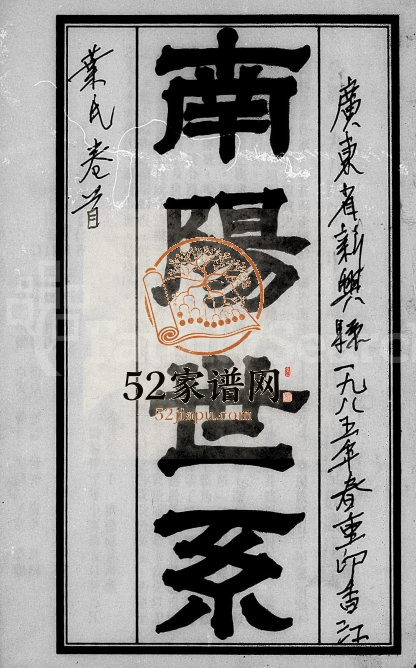 廣東省新興縣一九八五年春重印香江
南陽世系
葉氏卷首
52家谱网
52jiapu.com